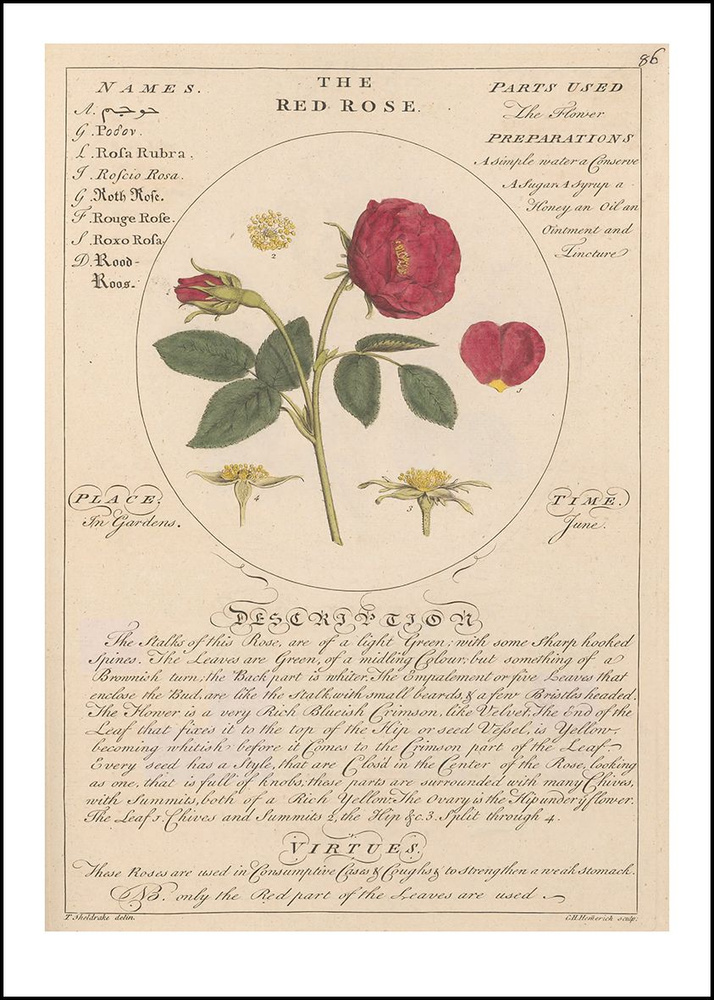 86
NAMES.
A. حوجم
G. Ροδον.
L. Rosa Rubra.
I. Roscio Rosa.
G. Roth Rose.
F. Rouge Rose.
S. Roxo Rosa
D. Rood-
Roos.
THE
RED ROSE.
PARTS USED
The Flower
PREPARATIONS
A simple water a Conserve
A Sugar A Syrup a
Honey an Oil an
Ointment and
Tincture
2
1
5
4
3
PLACE.
In Gardens.
TIME.
June.
DESCRIPTION
The Stalks of this Rose, are of a light Green; with some Sharp hooked
Spines. The Leaves are Green, of a midling Colour; but something of a
Brownish turn; the Back part is whiter. The Empalement or five Leaves that
enclose the Bud, are like the Stalk, with small beards, & a few Bristles headed.
The Flower is a very Rich Blueish Crimson, like Velvet. The End of the
Leaf that fixes it to the top of the Hip or seed Vessel, is Yellow,
becoming whitish before it Comes to the Crimson part of the Leaf.
Every seed has a Style, that are Clos'd in the Center of the Rose, looking
as one, that is full of knobs; these parts are surrounded with many Chives,
with Summits, both of a Rich Yellow. The Ovary is the Hip under y flower.
The Leaf 5 Chives and Summits 2, the Hip &c. 3. Split through 4.
VIRTUES.
These Roses are used in Consumptive Cases & Coughs & to strengthen a weak Stomack.
NB. only the Red part of the Leaves are used
T. Sheldrake delin.
C.H. Hemerich sculp.